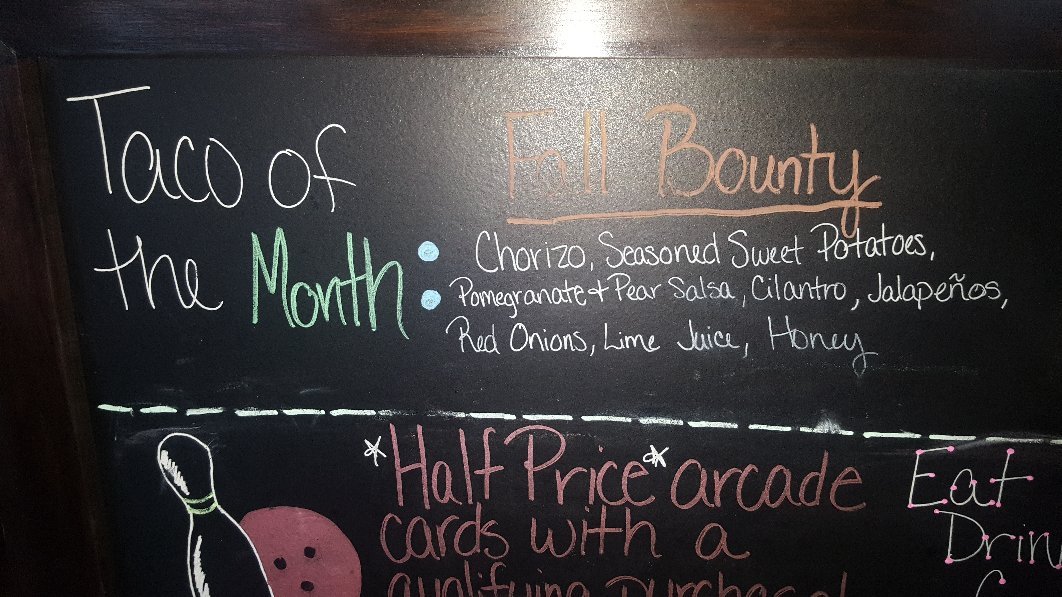 Taco of
the Month:
Fall Bounty
Chorizo, Seasoned Sweet Potatoes,
Pomegranate + Pear Salsa, Cilantro, Jalapeños,
Red Onions, Lime Juice, Honey
*Half Price* arcade
cards with a
qualifying purchase!
Eat